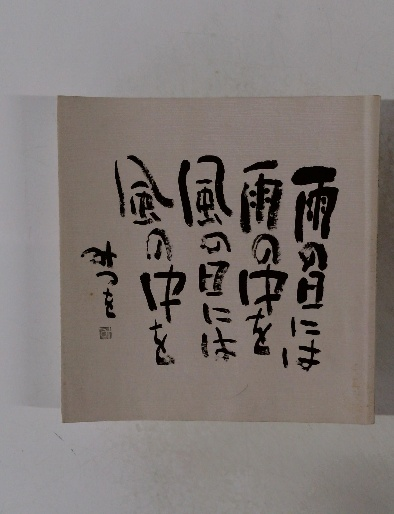 雨の日には
雨の中を
風の日には
風の中を